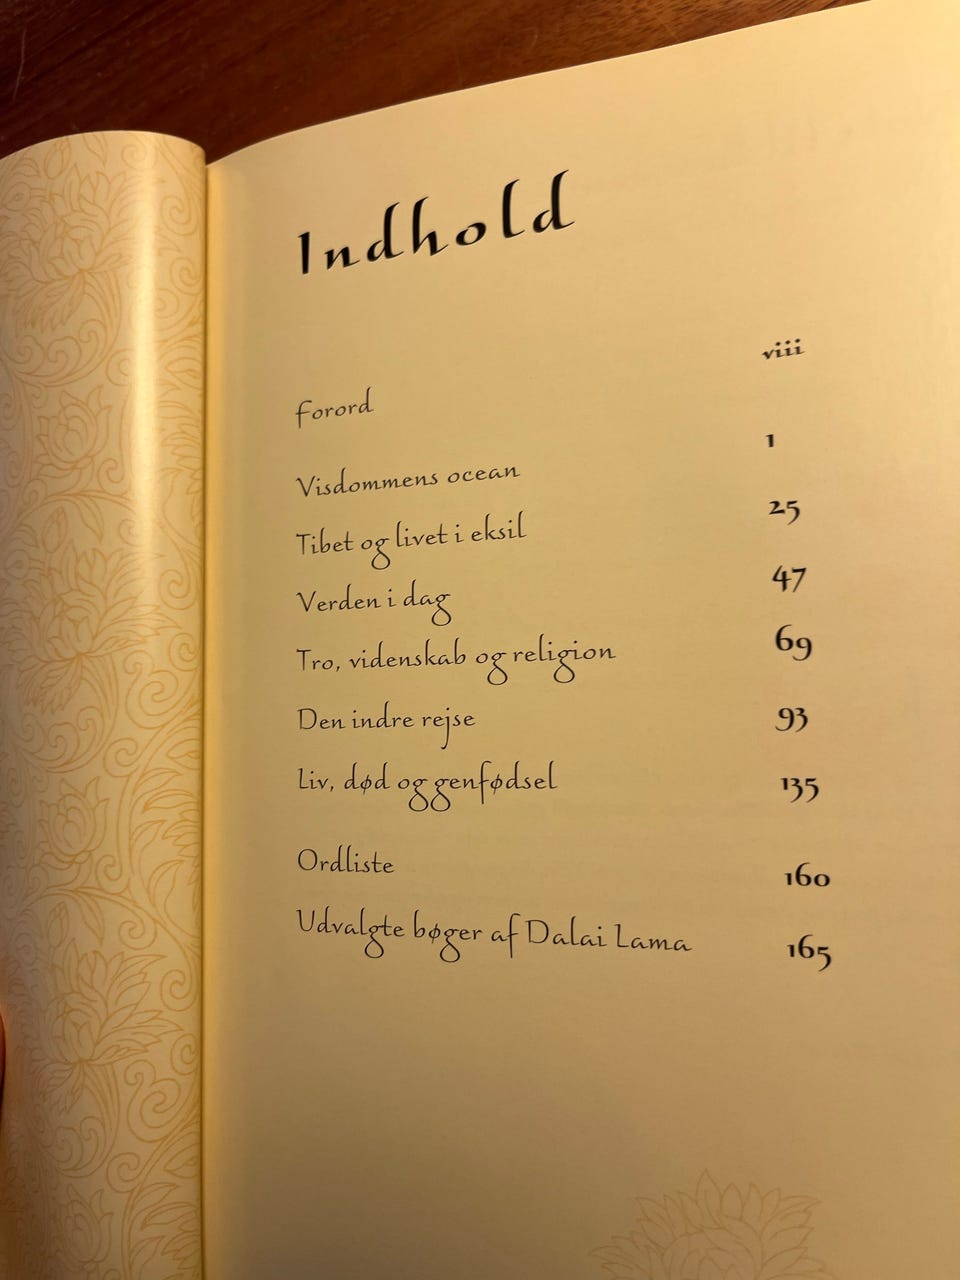 Indhold
Forord viii
Visdommens ocean 1
Tibet og livet i eksil 25
Verden i dag 47
Tro, videnskab og religion 69
Den indre rejse 93
Liv, død og genfødsel 135
Ordliste 160
Udvalgte bøger af Dalai Lama 165